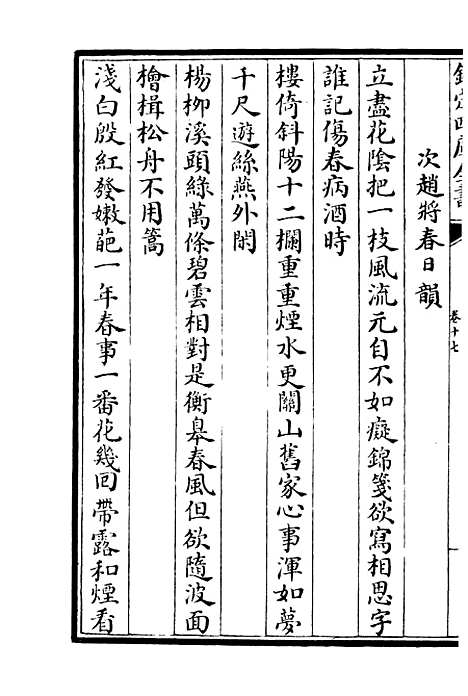 次趙將春日韻
立盡花陰把一枝風流元自不如癡錦箋欲寫相思字
誰記傷春病酒時
樓倚斜陽十二欄重重煙水更關山舊家心事渾如夢
千尺遊絲燕外閑
楊栁溪頭綠萬條碧雲相對是衡臯春風但欲隨波面
檜楫松舟不用篙
淺白殷紅發嫩葩一年春事一番花幾回帶露和煙看
卷十七